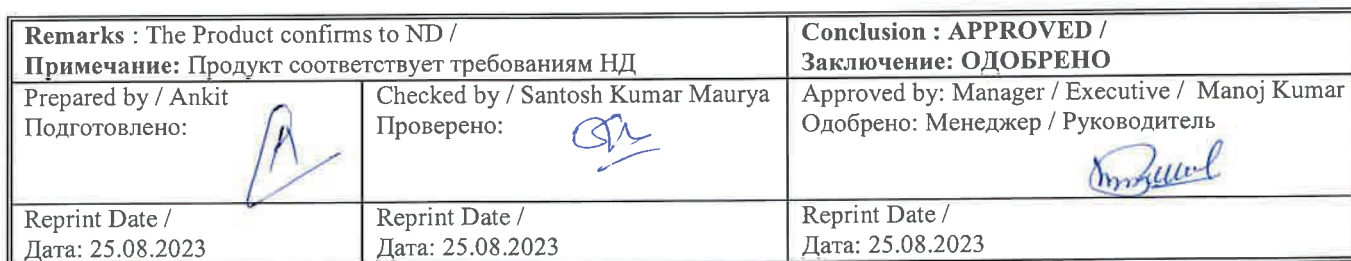 Remarks : The Product confirms to ND /
Примечание: Продукт соответствует требованиям НД
Conclusion : APPROVED /
Заключение: ОДОБРЕНО
Prepared by / Ankit
Подготовлено:
Checked by / Santosh Kumar Maurya
Проверено:
Approved by: Manager / Executive / Manoj Kumar
Одобрено: Менеджер / Руководитель
Reprint Date /
Дата: 25.08.2023
Reprint Date /
Дата: 25.08.2023
Reprint Date /
Дата: 25.08.2023